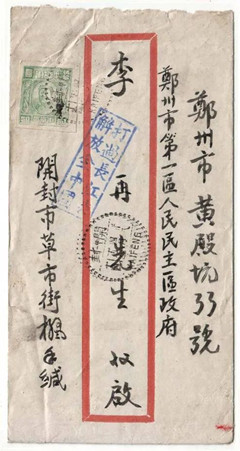 鄭州市黃殿坑號
鄭州市第一區人民民主一區政府
李再生啟
打過長江
解放全中國
KAIFENG
開封市草市街緘